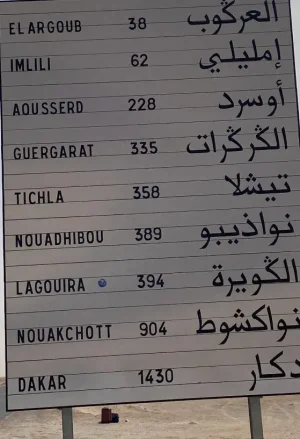 EL ARGOUB 38 العرڭوب
IMLILI 62 إمليلي
AOUSSERD 228 أوسرد
GUERGARAT 335 الڭرڭرات
TICHLA 358 تيشلا
NOUADHIBOU 389 نواذيبو
LAGOUIRA 394 الڭويرة
NOUAKCHOTT 904 نواكشوط
DAKAR 1430 دكار